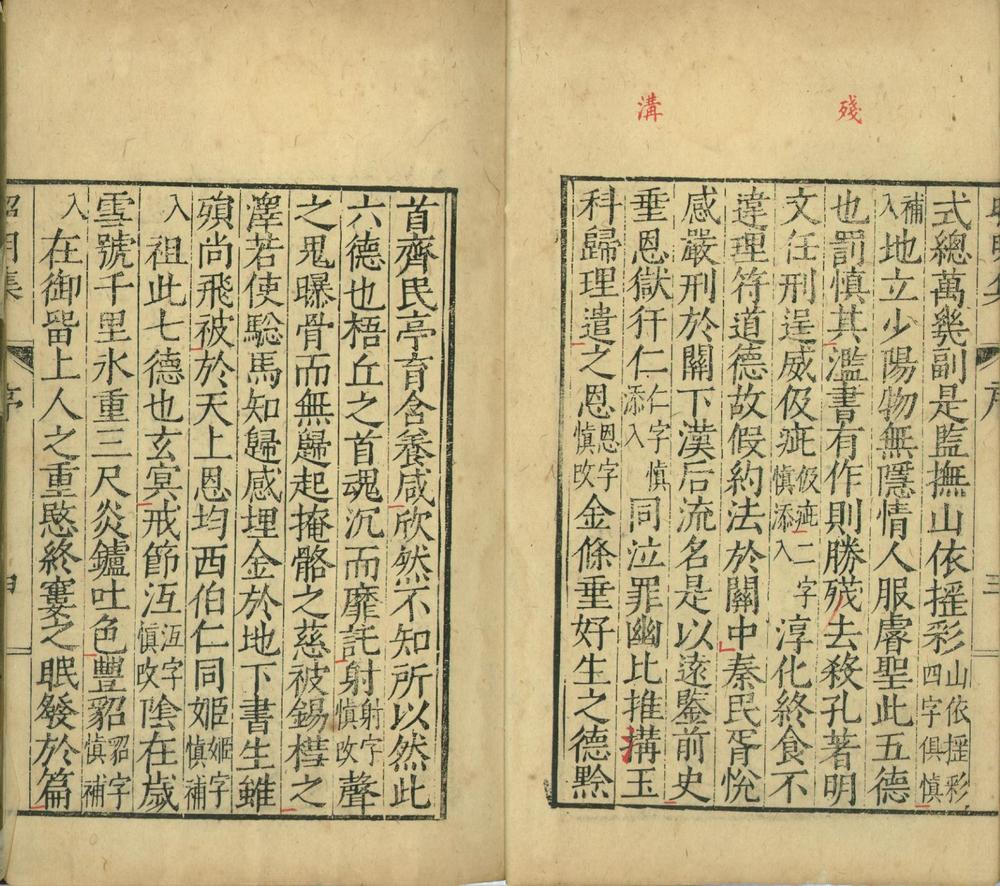 殘
溝
式總萬幾副是監撫山依搖彩山依搖彩四字俱慎
補入地立少陽物無隱情人服睿聖此五德
也罰慎其濫書有作則勝殘去殺孔著明
文任刑逞威伋疵伋疵二字慎添入淳化終食不
違理符道德故假約法於關中秦民胥悅
感嚴刑於闕下漢后流名是以遠鑒前史
垂恩獄犴仁仁字慎添入同泣罪幽比推搆玉
科歸理遣之恩恩字慎改金條垂好生之德黔
首齊民亭育含養咸欣然不知所以然此
六德也梧丘之首魂沉而靡託射射字慎改聲
之鬼曝骨而無歸起掩骼之慈被錫槥之
澤若使駿馬知歸感埋金於地下書生雖
殞尚飛被於天上恩均西伯仁同姬姬字慎補
入祖此七德也玄冥戒節沍沍字慎改陰在歲
雪號千里氷重三尺炎鑪吐色豐貂貂字慎補
入在御留上人之重愍終窶之眠發於篇
昭明集
序
三
四